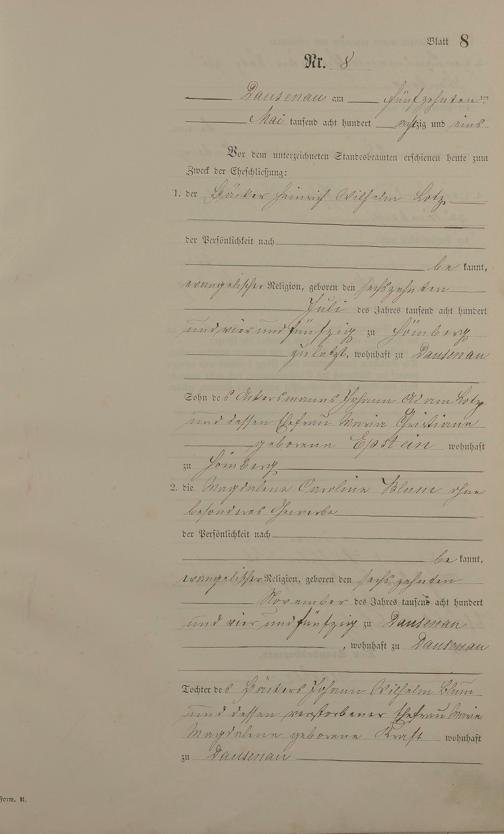 Blatt 8
Nr. 8
Dausenau am fünfzehnten ten
Mai tausend acht hundert achtzig und eins
Vor dem unterzeichneten Standesbeamten erschienen heute zum
Zweck der Eheschließung:
1. der Bäcker Heinrich Wilhelm Lotz
der Persönlichkeit nach
be kannt,
evangelischer Religion, geboren den sechszehnten
Juli des Jahres tausend acht hundert
und vier und fünfzig zu Hömberg
zuletzt, wohnhaft zu Dausenau
Sohn des Ackersmanns Johann Adam Lotz
und dessen Ehefrau Maria Christiane
geborene Epstein wohnhaft
zu Hömberg
2. die Magdalena Carolina Blum ohne
besonderes Gewerbe
der Persönlichkeit nach
be kannt,
evangelischer Religion, geboren den sechszehnten
November des Jahres tausend acht hundert
und vier und fünfzig zu Dausenau
, wohnhaft zu Dausenau
Tochter des Bäckers Johann Wilhelm Blum
und dessen verstorbener Ehefrau Maria
Magdalene geborene Kraft wohnhaft
zu Dausenau
Form.